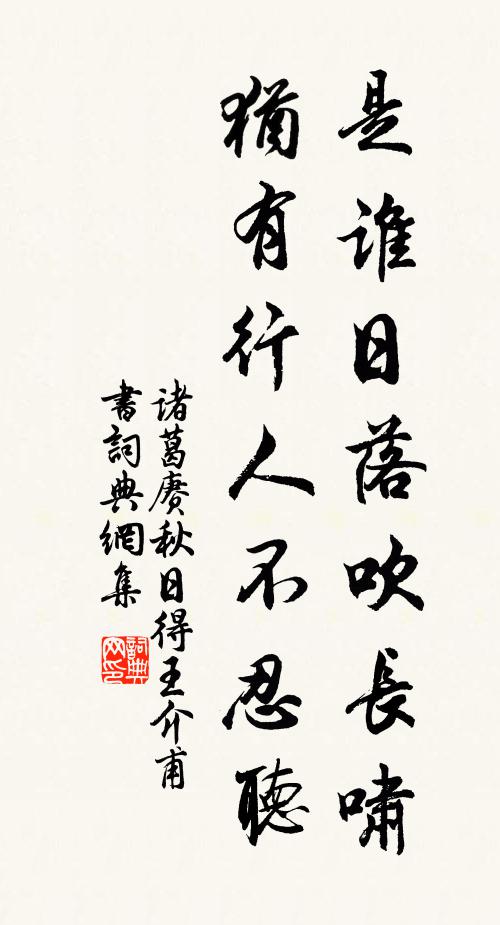 是誰日落吹長嘯
猶有行人不忍聽
諸葛賡秋日得王介甫
書詞典網集
詞典
网印